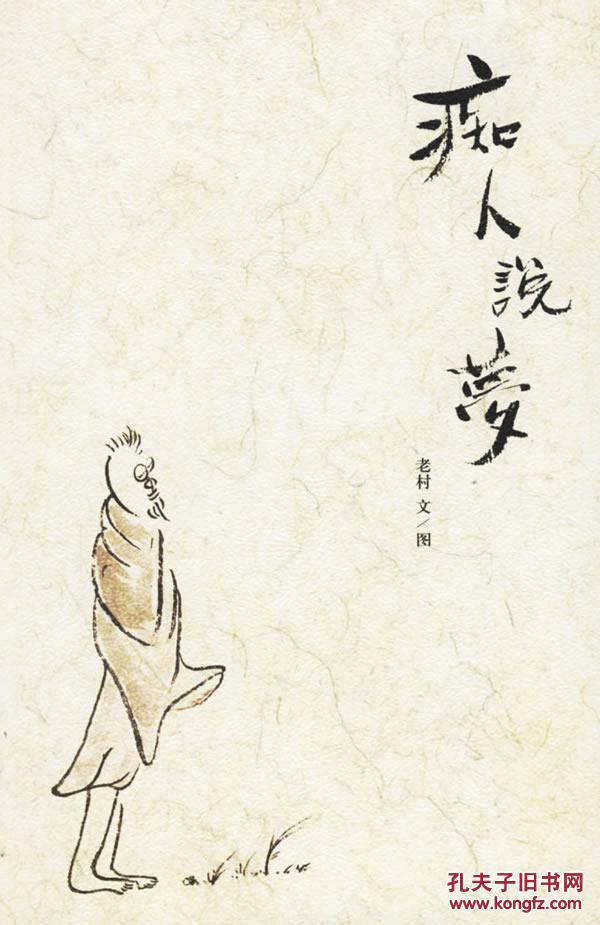 痴人説夢
老村 文/图
孔夫子旧书网
www.kongfz.com